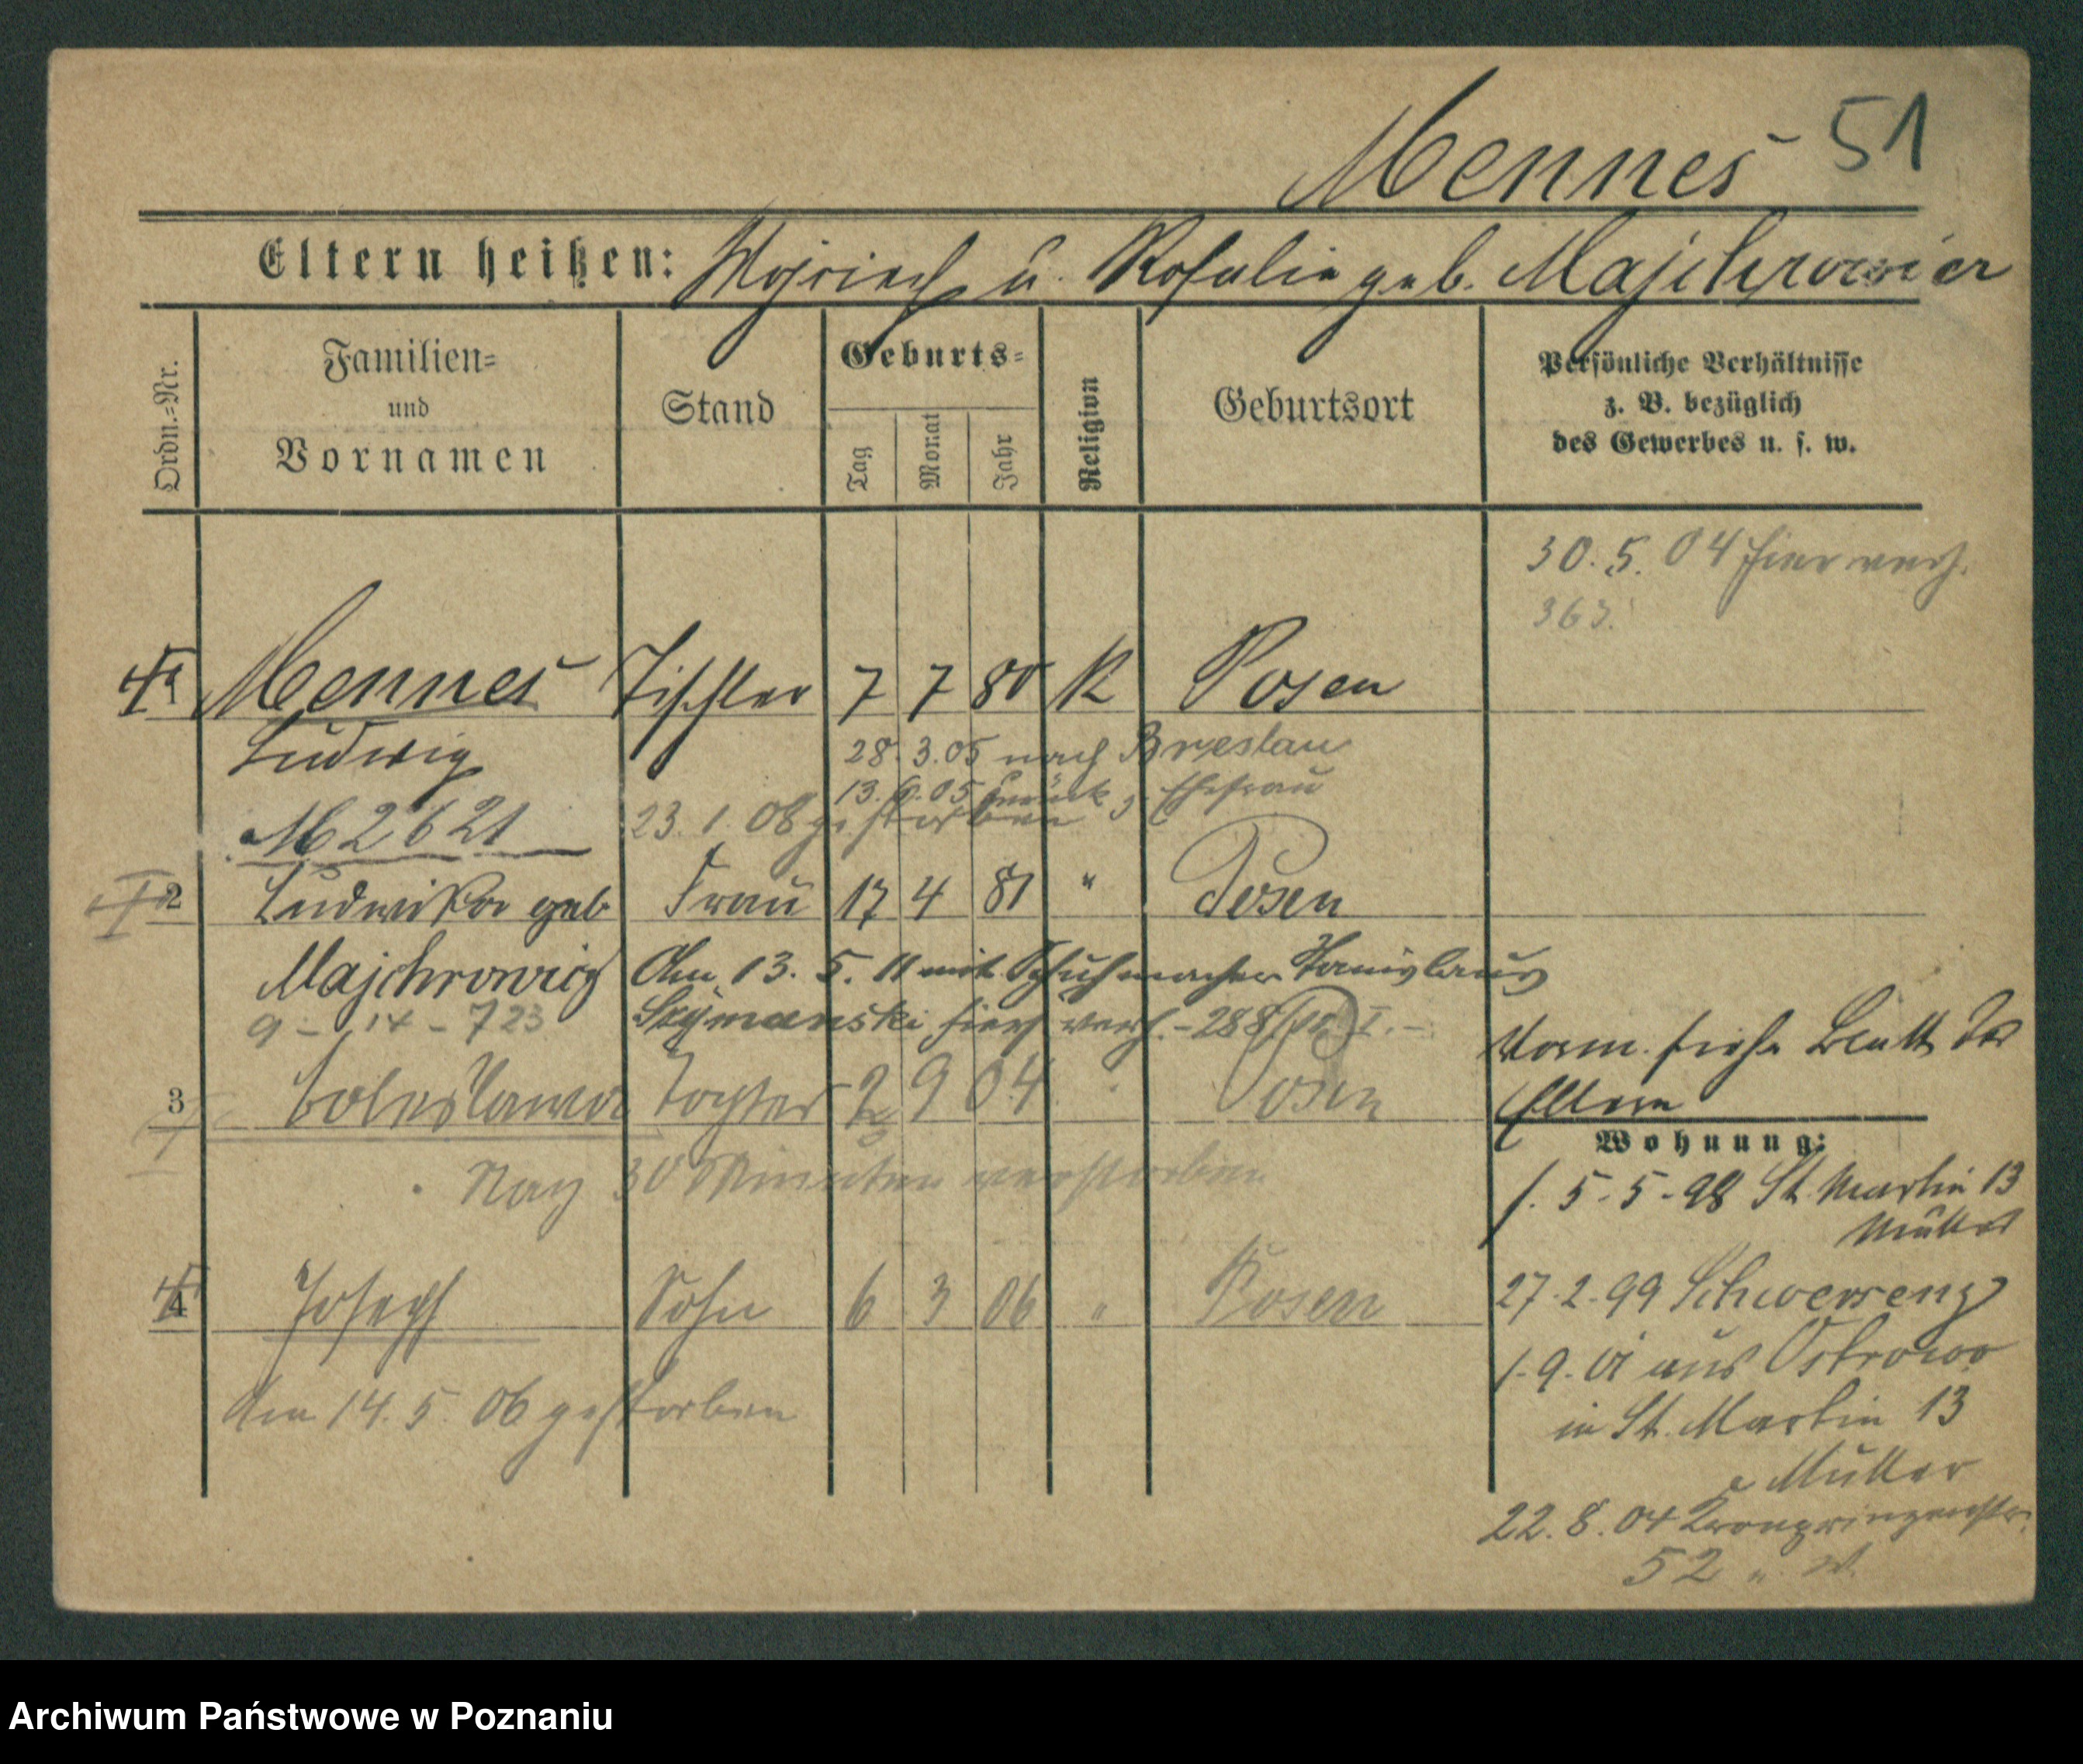 Mennes 51
Eltern heißen: Wojciech u. Rosalie geb. Majchrowicz
Ordn.-Nr.
Familien-
und
Vornamen
Stand
Geburts-
Tag
Monat
Jahr
Religion
Geburtsort
Persönliche Verhältnisse
z. B. bezüglich
des Gewerbes u. s. w.
30. 5. 04 hier verh.
363.
1 Mennes Tischler 7 7 80 K Posen
Ludwig
28. 3. 05 nach Breslau
13. 6. 05 zurück z. Ehefrau
M 2621 23. 1. 08 gestorben
2 Ludwika geb Frau 17 4 81 " Posen
Majchrowicz Am 13. 5. 11 mit Schuhmacher Stanislaus
9 - 14 - 723 Szymanski hier verh. - 288
Vorm. siehe Blatt der
Eltern
3 Boleslawa Tochter 2 9 04 " Posen
Nach 30 Minuten verstorben
Wohnung:
1. 5 - 5 - 98 St. Martin 13
Müller
4 Joseph Sohn 6 3 06 " Posen
27. 2. 99 Schwersenz
1. 9. 01 aus Ostrowo
Am 14. 5. 06 gestorben
in St. Martin 13
Müller
22. 8. 04 Kronprinzenstr.
52
Archiwum Państwowe w Poznaniu